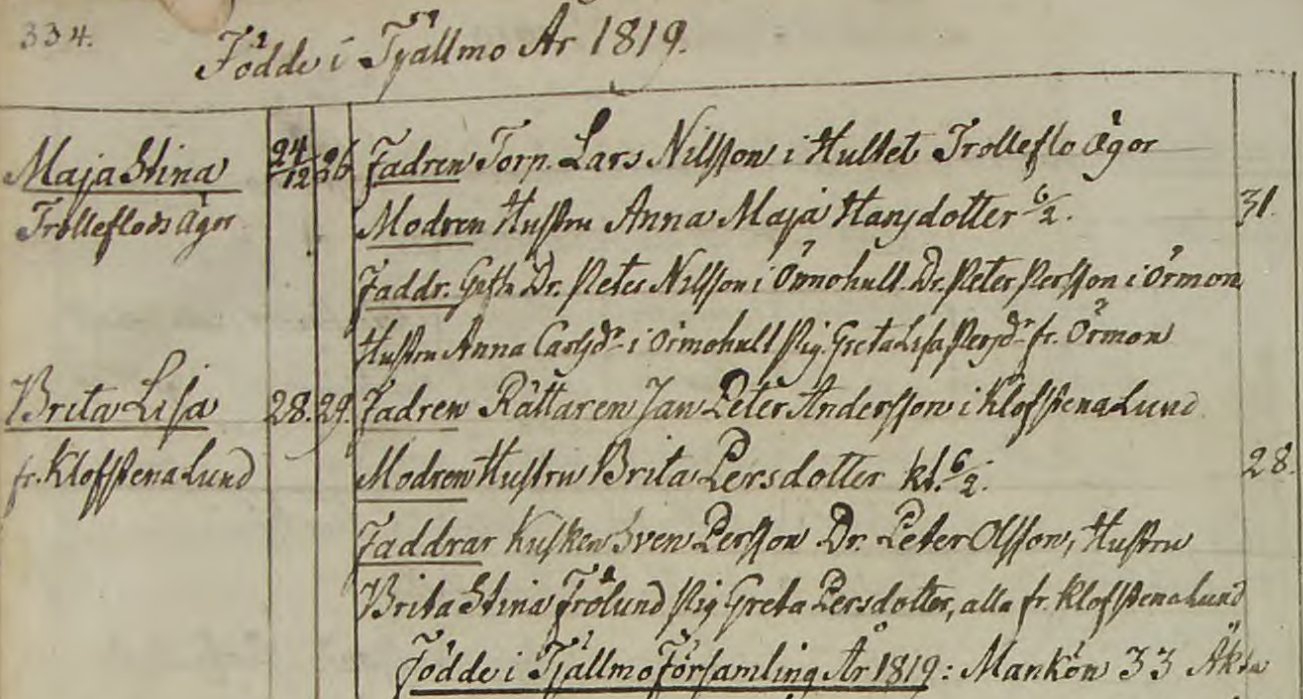 334.
Födde i Tjällmo År 1819.
Maja Stina 24/12 26 Fadren Torp. Lars Nilsson i Hultet Trolleflo ägor
Trolleflods ägor Modren Hustru Anna Maja Hansdotter 6/2. 31.
Faddr. Dr. Peter Nilsson i Örmohult. Dr. Peter Persson i Örmon
Hustru Anna Carlsdr i Örmohult Pig. Greta Lisa Persdr fr. Örmon
Brita Lisa 28. 29. Fadren Rättaren Jan Peter Andersson i Klofstena Lund
fr. Klofstena Lund Modren Hustru Brita Persdotter kl. 6/2. 28.
Faddrar Kusken Sven Persson Dr. Peter Olsson, Hustru
Brita Stina Frölund Pig Greta Persdotter, alla fr. Klofstena Lund
Födde i Tjällmo Församling År 1819: Mankön 33 Äkta